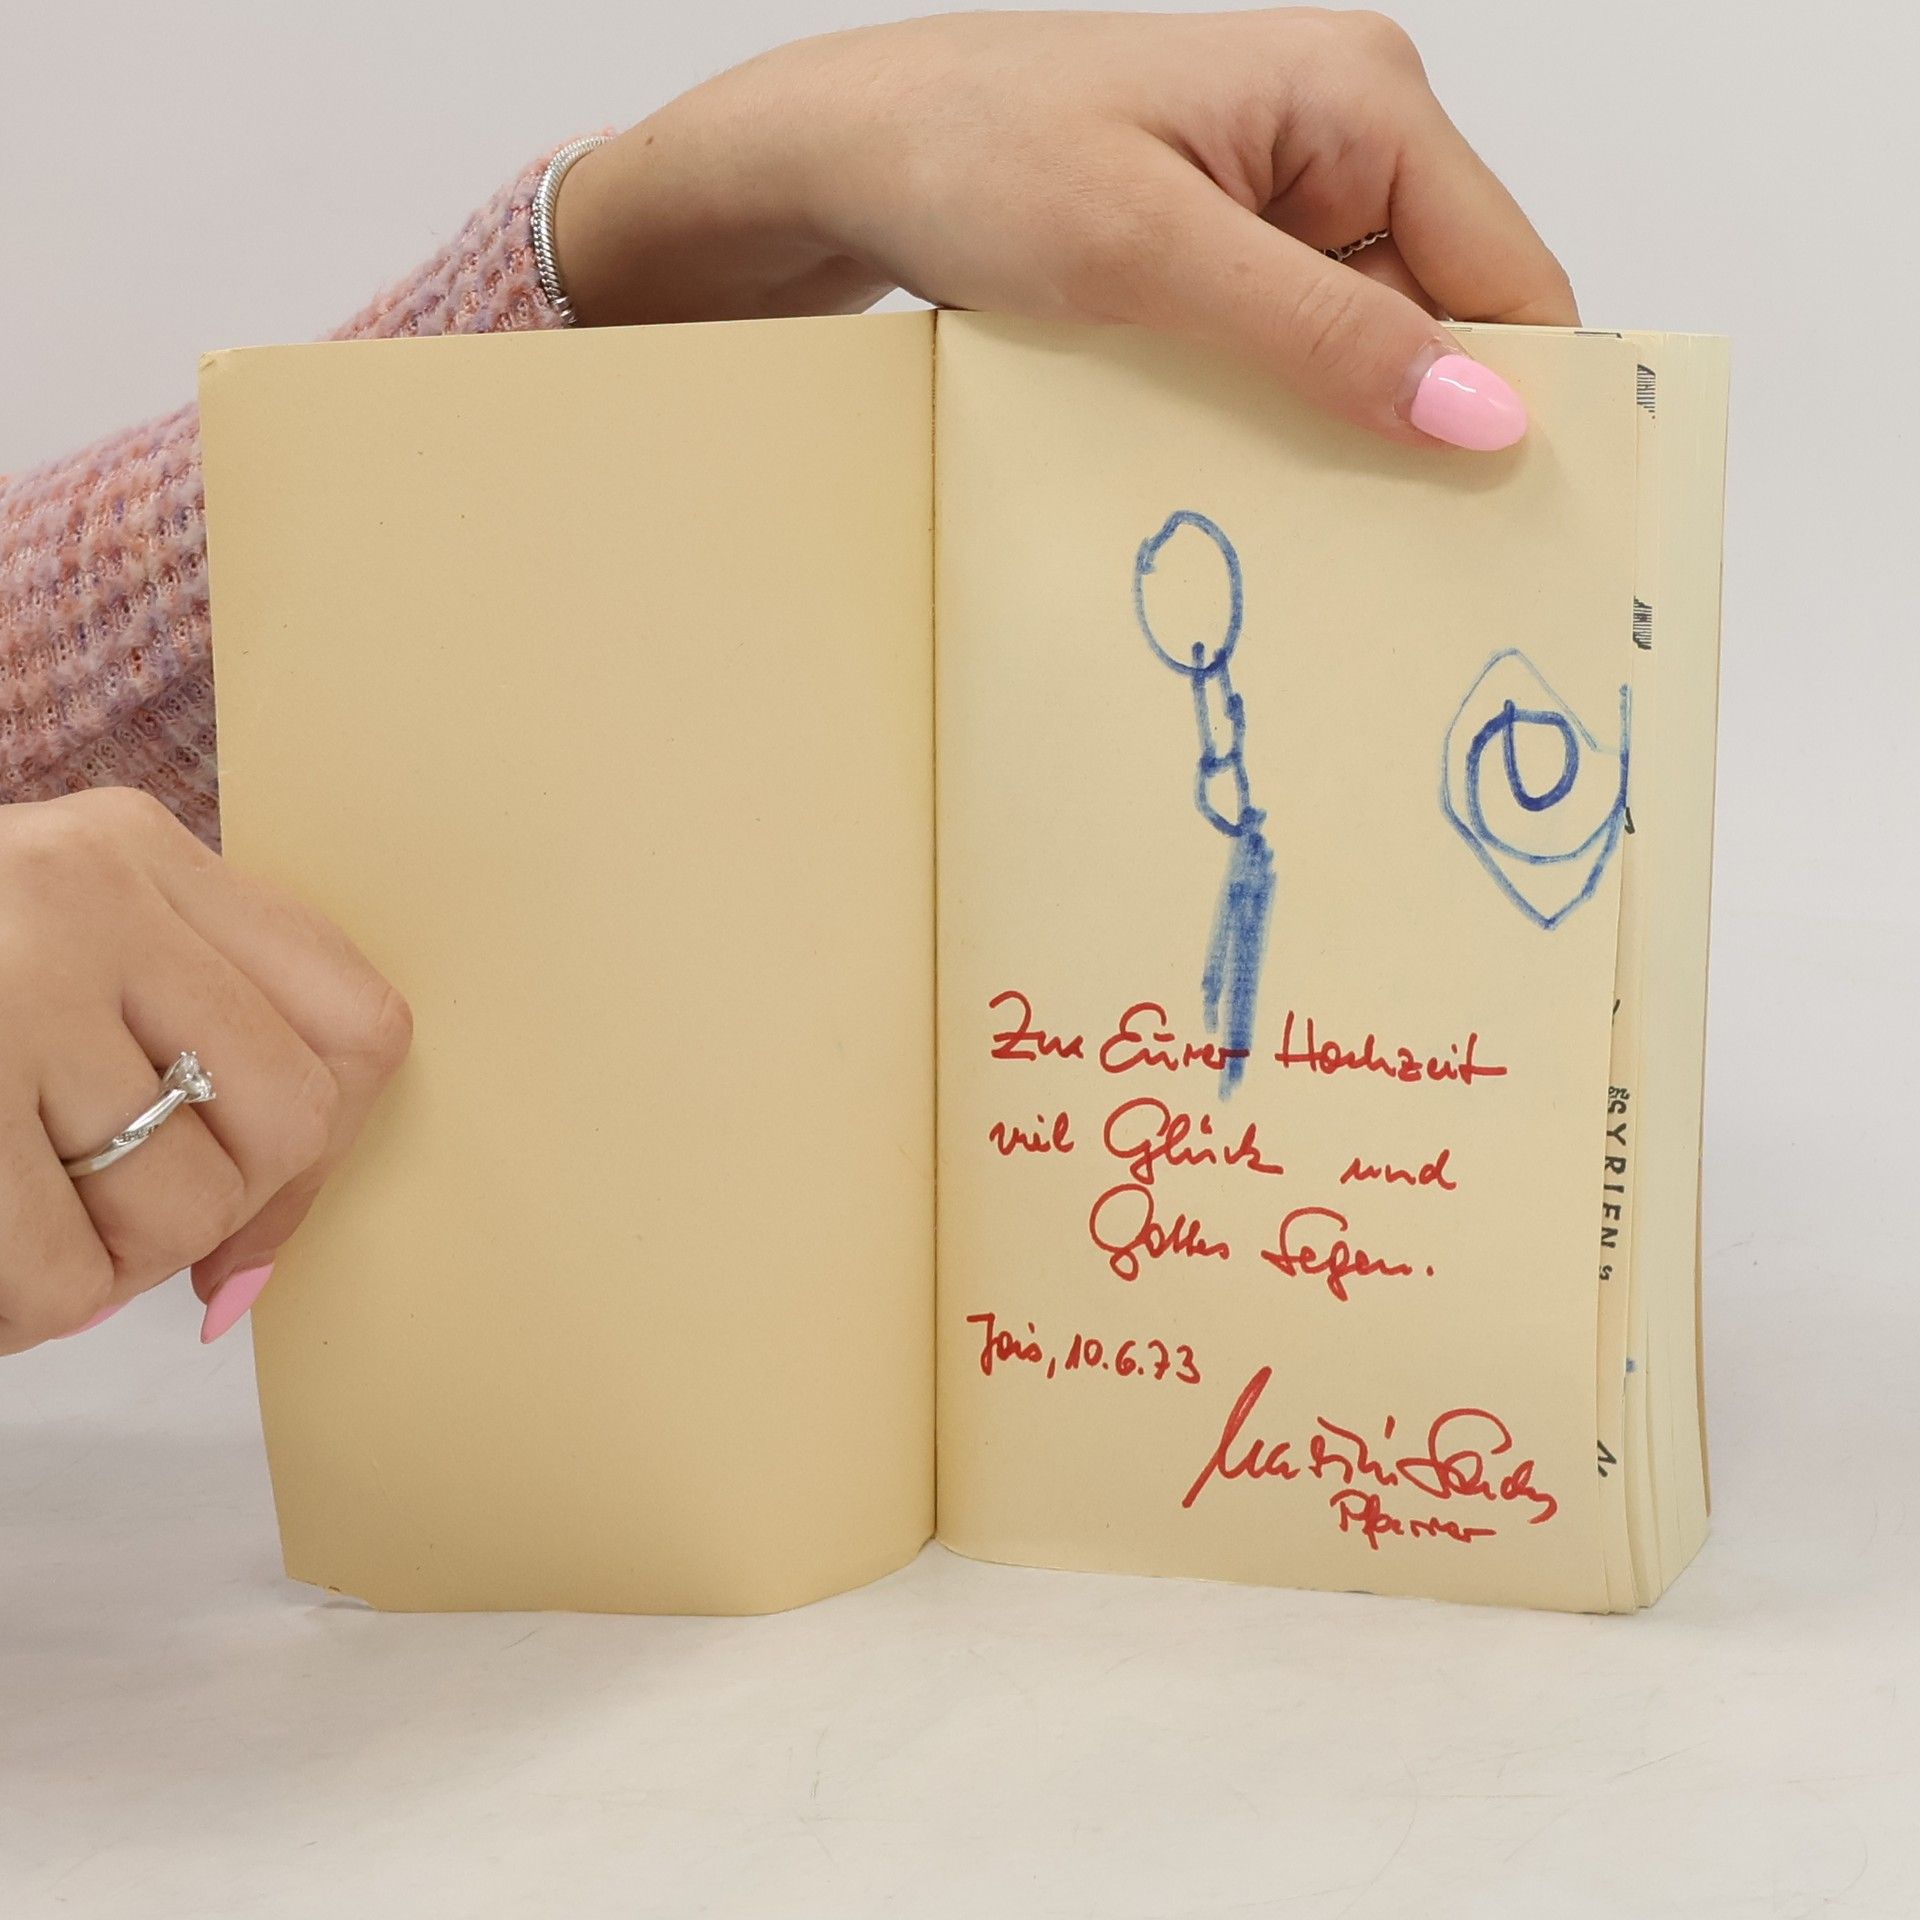 Zur Eurer Hochzeit
viel Glück und
Gottes Segen.
Jois, 10.6.73
Martin
Pfarrer
SYRIEN